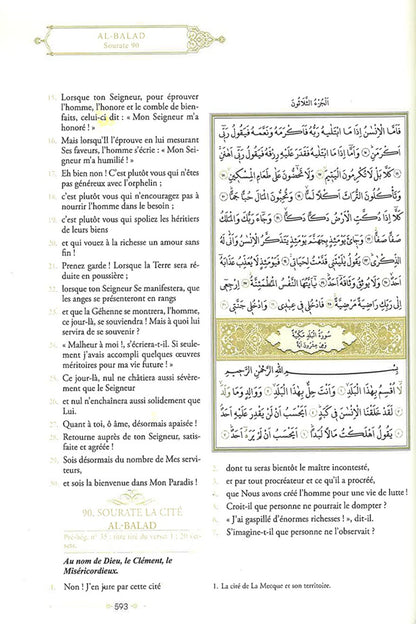 AL-BALAD
Sourate 90
15. Lorsque ton Seigneur, pour éprouver
l'homme, l'honore et le comble de bien-
faits, celui-ci dit : « Mon Seigneur m'a
honoré ! »
16. Mais lorsqu'Il l'éprouve en lui mesurant
Ses faveurs, l'homme s'écrie : « Mon Sei-
gneur m'a humilié ! »
17. Eh bien non ! C'est plutôt vous qui n'êtes
pas généreux avec l'orphelin ;
18. c'est plutôt vous qui n'encouragez pas à
nourrir l'homme dans le besoin ;
19. c'est plutôt vous qui spoliez les héritiers
de leurs biens
20. et qui vouez à la richesse un amour sans
fin !
21. Prenez garde ! Lorsque la Terre sera ré-
duite en poussière ;
22. lorsque ton Seigneur Se manifestera, que
les anges se présenteront en rangs
23. et que la Géhenne se montrera, l'homme,
ce jour-là, se souviendra ! Mais à quoi lui
servira de se souvenir ?
24. « Malheur à moi !, s'écriera-t-il. Si seule-
ment j'avais accompli quelques œuvres
méritoires pour ma vie future ! »
25. Ce jour-là, nul ne châtiera aussi sévère-
ment que le Seigneur
26. et nul n'enchaînera aussi solidement que
Lui.
27. Quant à toi, ô âme, désormais apaisée !
28. Retourne auprès de ton Seigneur, satis-
faite et agréée !
29. Sois désormais du nombre de Mes servi-
teurs,
30. et sois la bienvenue dans Mon Paradis !
90. SOURATE LA CITÉ
AL-BALAD
Pré-hég. n° 35 ; tire son titre du verset 1 ; 20 ver-
sets.
Au nom de Dieu, le Clément, le
Miséricordieux.
1. Non ! J'en jure par cette cité
الجزء الثلاثون
فَأَمَّا الْإِنسَٰنُ إِذَا مَا ابْتَلَىٰهُ رَبُّهُ فَأَكْرَمَهُ وَنَعَّمَهُ فَيَقُولُ رَبِّي
أَكْرَمَنِ ١٥ وَأَمَّا إِذَا مَا ابْتَلَىٰهُ فَقَدَرَ عَلَيْهِ رِزْقَهُ فَيَقُولُ رَبِّي أَهَٰنَنِ
١٦ كَلَّا بَل لَّا تُكْرِمُونَ الْيَتِيمَ ١٧ وَلَا تَحَٰٓضُّونَ عَلَىٰ طَعَامِ الْمِسْكِينِ
١٨ وَتَأْكُلُونَ التُّرَاثَ أَكْلًا لَّمًّا ١٩ وَتُحِبُّونَ الْمَالَ حُبًّا جَمًّا ٢٠
كَلَّا إِذَا دُكَّتِ الْأَرْضُ دَكًّا دَكًّا ٢١ وَجَاءَ رَبُّكَ وَالْمَلَكُ
صَفًّا صَفًّا ٢٢ وَجِاْيءَ يَوْمَئِذٍ بِجَهَنَّمَ يَوْمَئِذٍ يَتَذَكَّرُ الْإِنسَٰنُ وَأَنَّىٰ لَهُ
الذِّكْرَىٰ ٢٣ يَقُولُ يَٰلَيْتَنِي قَدَّمْتُ لِحَيَاتِي ٢٤ فَيَوْمَئِذٍ لَّا يُعَذِّبُ عَذَابَهُ
أَحَدٌ ٢٥ وَلَا يُوثِقُ وَثَاقَهُ أَحَدٌ ٢٦ يَٰٓأَيَّتُهَا النَّفْسُ الْمُطْمَئِنَّةُ ٢٧ ارْجِعِي
إِلَىٰ رَبِّكِ رَاضِيَةً مَّرْضِيَّةً ٢٨ فَادْخُلِي فِي عِبَٰدِي ٢٩ وَادْخُلِي جَنَّتِي ٣٠
سُورَةُ الْبَلَدِ مَكِّيَّةٌ
وَهِيَ عِشْرُونَ آيَةً
بِسْمِ اللَّهِ الرَّحْمَٰنِ الرَّحِيمِ
لَا أُقْسِمُ بِهَٰذَا الْبَلَدِ ١ وَأَنتَ حِلٌّ بِهَٰذَا الْبَلَدِ ٢ وَوَالِدٍ وَمَا وَلَدَ ٣
لَقَدْ خَلَقْنَا الْإِنسَٰنَ فِي كَبَدٍ ٤ أَيَحْسَبُ أَن لَّن يَقْدِرَ عَلَيْهِ أَحَدٌ ٥
يَقُولُ أَهْلَكْتُ مَالًا لُّبَدًا ٦ أَيَحْسَبُ أَن لَّمْ يَرَهُ أَحَدٌ ٧
2. dont tu seras bientôt le maître incontesté,
3. et par tout procréateur et ce qu'il a procréé,
4. que Nous avons créé l'homme pour une vie de lutte !
5. Croit-il que personne ne pourrait le dompter ?
6. « J'ai gaspillé d'énormes richesses ! », dit-il.
7. S'imagine-t-il que personne ne l'observait ?
1. La cité de La Mecque et son territoire.
593